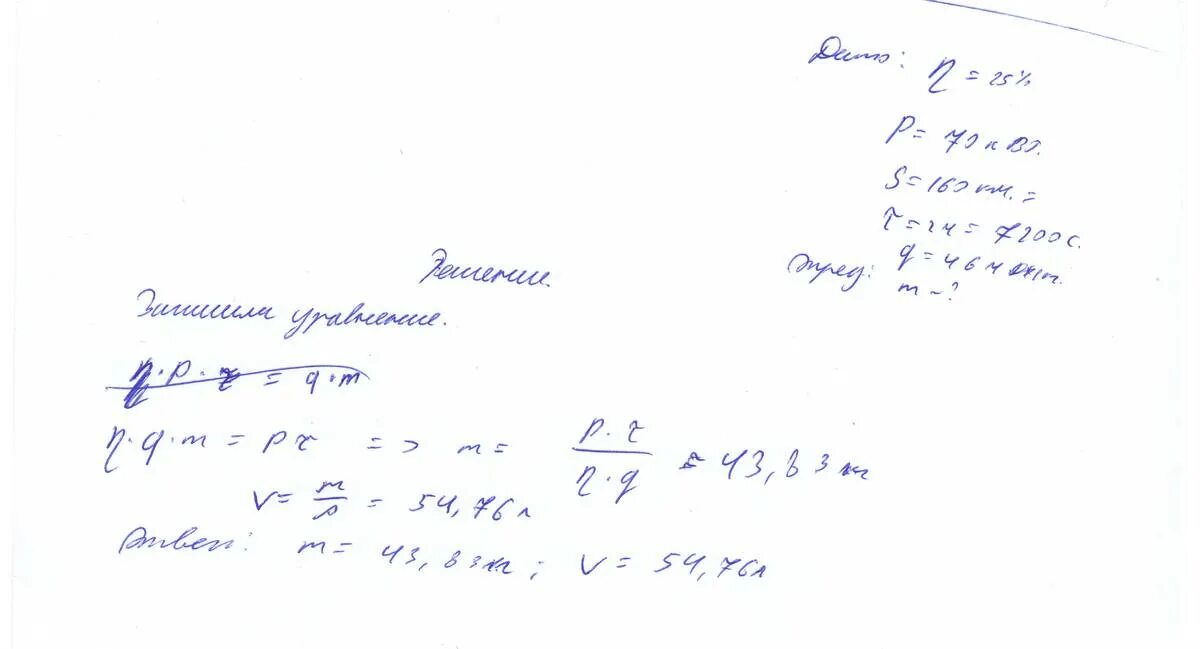 Дано: η = 25%
P = 70 кВт.
S = 160 км. =
τ = 2ч = 7200 с.
q = 46 МДж/кг.
m - ?
Решение.
Запишем уравнение.
η · P · τ = q · m
η · q · m = P τ => m = P · τ / η · q = 43,83 кг
V = m / ρ = 54,76 л
Ответ: m = 43,83 кг ; V = 54,76 л